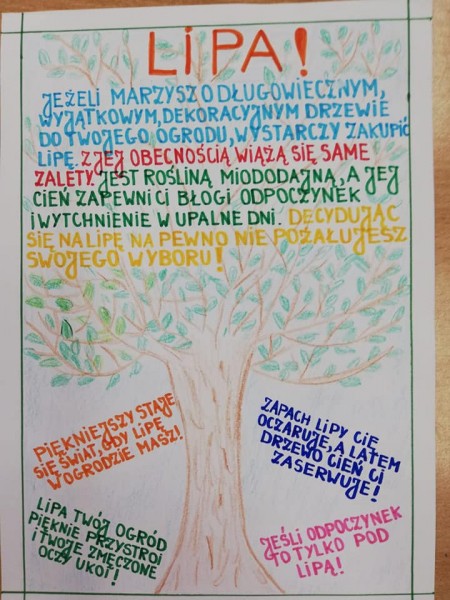 LiPA!
JEŻELI MARZYSZ O DŁUGOWIECZNYM,
WYJĄTKOWYM, DEKORACYJNYM DRZEWIE
DO TWOJEGO OGRODU, WYSTARCZY ZAKUPIĆ
LIPĘ. Z JEJ OBECNOŚCIĄ WIĄŻĄ SIĘ SAME
ZALETY. JEST ROŚLINĄ MIODODAJNĄ, A JEJ
CIEŃ ZAPEWNI CI BŁOGI ODPOCZYNEK
I WYTCHNIENIE W UPALNE DNI. DECYDUJĄC
SIĘ NA LIPĘ NA PEWNO NIE POŻAŁUJESZ
SWOJEGO WYBORU!
PIĘKNIEJSZY STAJE
SIĘ ŚWIAT, GDY LIPĘ
W OGRODZIE MASZ!
ZAPACH LIPY CIĘ
OCZARUJE, A LATEM
DRZEWO CIEŃ CI
ZASERWUJE!
LIPA TWÓJ OGRÓD
PIĘKNIE PRZYSTROI
I TWOJE ZMĘCZONE
OCZY UKOI!
JEŚLI ODPOCZYNEK
TO TYLKO POD
LIPĄ!